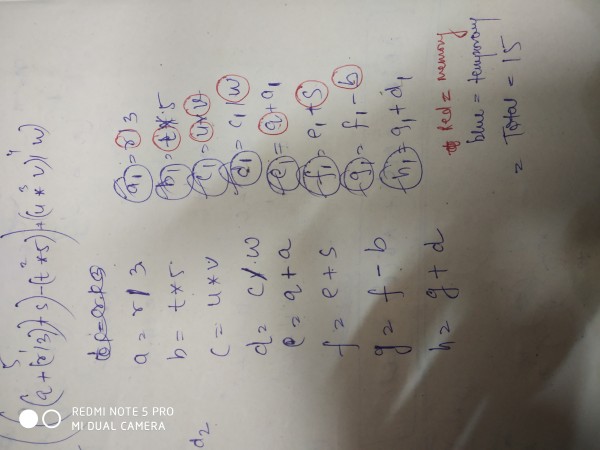 ((q+(r/3))+s)-(t*5))+((u*v)/w)
a = r/3
b = t*5
c = u*v
d = c/w
e = q+a
f = e+s
g = f-b
h = g+d
a1 = r/3
b1 = t*5
c1 = u*v
d1 = c1/w
e1 = q+a1
f1 = e1+s
g1 = f1-b
h1 = g1+d1
Red = memory
blue = temporary
= Total = 15
d2
REDMI NOTE 5 PRO
MI DUAL CAMERA